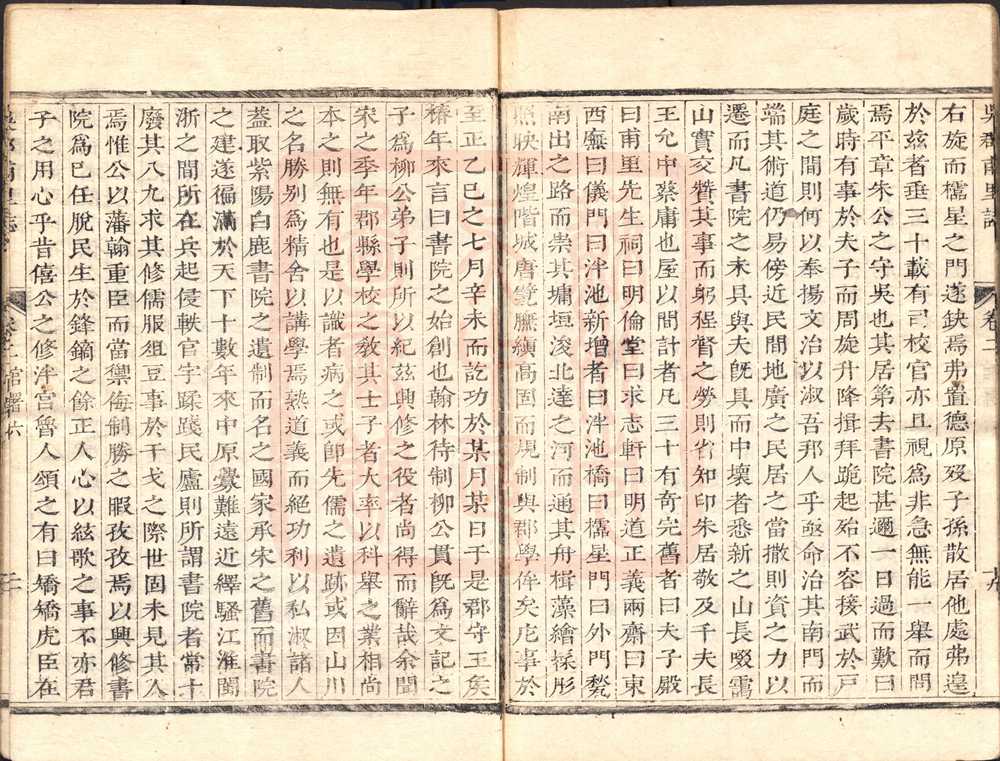 吳郡甫里志 卷二
右旋而櫺星之門遂缺焉弗置德原歿子孫散居他處弗遑
於兹者垂三十載有司校官亦且視為非急無能一舉而問
焉平章朱公之守吳也其居第去書院甚邇一日過而歎曰
歲時有事於夫子而周旋升降揖拜跪起殆不容接武於戸
庭之間則何以奉揚文治以淑吾邦人乎亟命治其南門而
端其術道仍易傍近民間地廣之民居之當撤則資之力以
遷而凡書院之未具與夫既具而中壞者悉新之山長啜霭
山實交贊其事而躬程督之勞則省知印朱居敬及千夫長
王允中蔡庸也屋以間計者凡三十有奇完舊者曰夫子殿
曰甫里先生祠曰明倫堂曰求志軒曰明道正義兩齋曰東
西廡曰儀門曰泮池新增者曰泮池橋曰櫺星門曰外門甃
南出之路而崇其墉垣浚北達之河而通其舟楫藻繪採彤
照映輝煌階城唐甓膴績高固而規制與郡學侔矣庀事於
至正乙巳之七月辛未而訖功於某月某日于是郡守王矦
椿年來言曰書院之始創也翰林待制柳公貫既為文記之
子為柳公弟子則所以紀兹興修之役者尚得而辭哉余聞
宋之季年郡縣學校之敎其士子者大率以科舉之業相尚
本之則無有也是以識者病之或卽先儒之遺跡或因山川
之名勝别為精舍以講學焉熟道義而絕功利以私淑諸人
葢取紫陽白鹿書院之遺制而名之國家承宋之舊而書院
之建遂徧滿於天下十數年來中原釁難遠近繹騷江淮閩
浙之間所在兵起侵軼官宇蹂踐民廬則所謂書院者常十
廢其八九求其修儒服俎豆事於干戈之際世固未見其人
焉惟公以藩翰重臣而當禦侮制勝之暇孜孜焉以興修書
院為已任脫民生於鋒鏑之餘正人心以絃歌之事不亦君
子之用心乎昔僖公之修泮宮魯人頌之有曰矯矯虎臣在
卷二 館署六